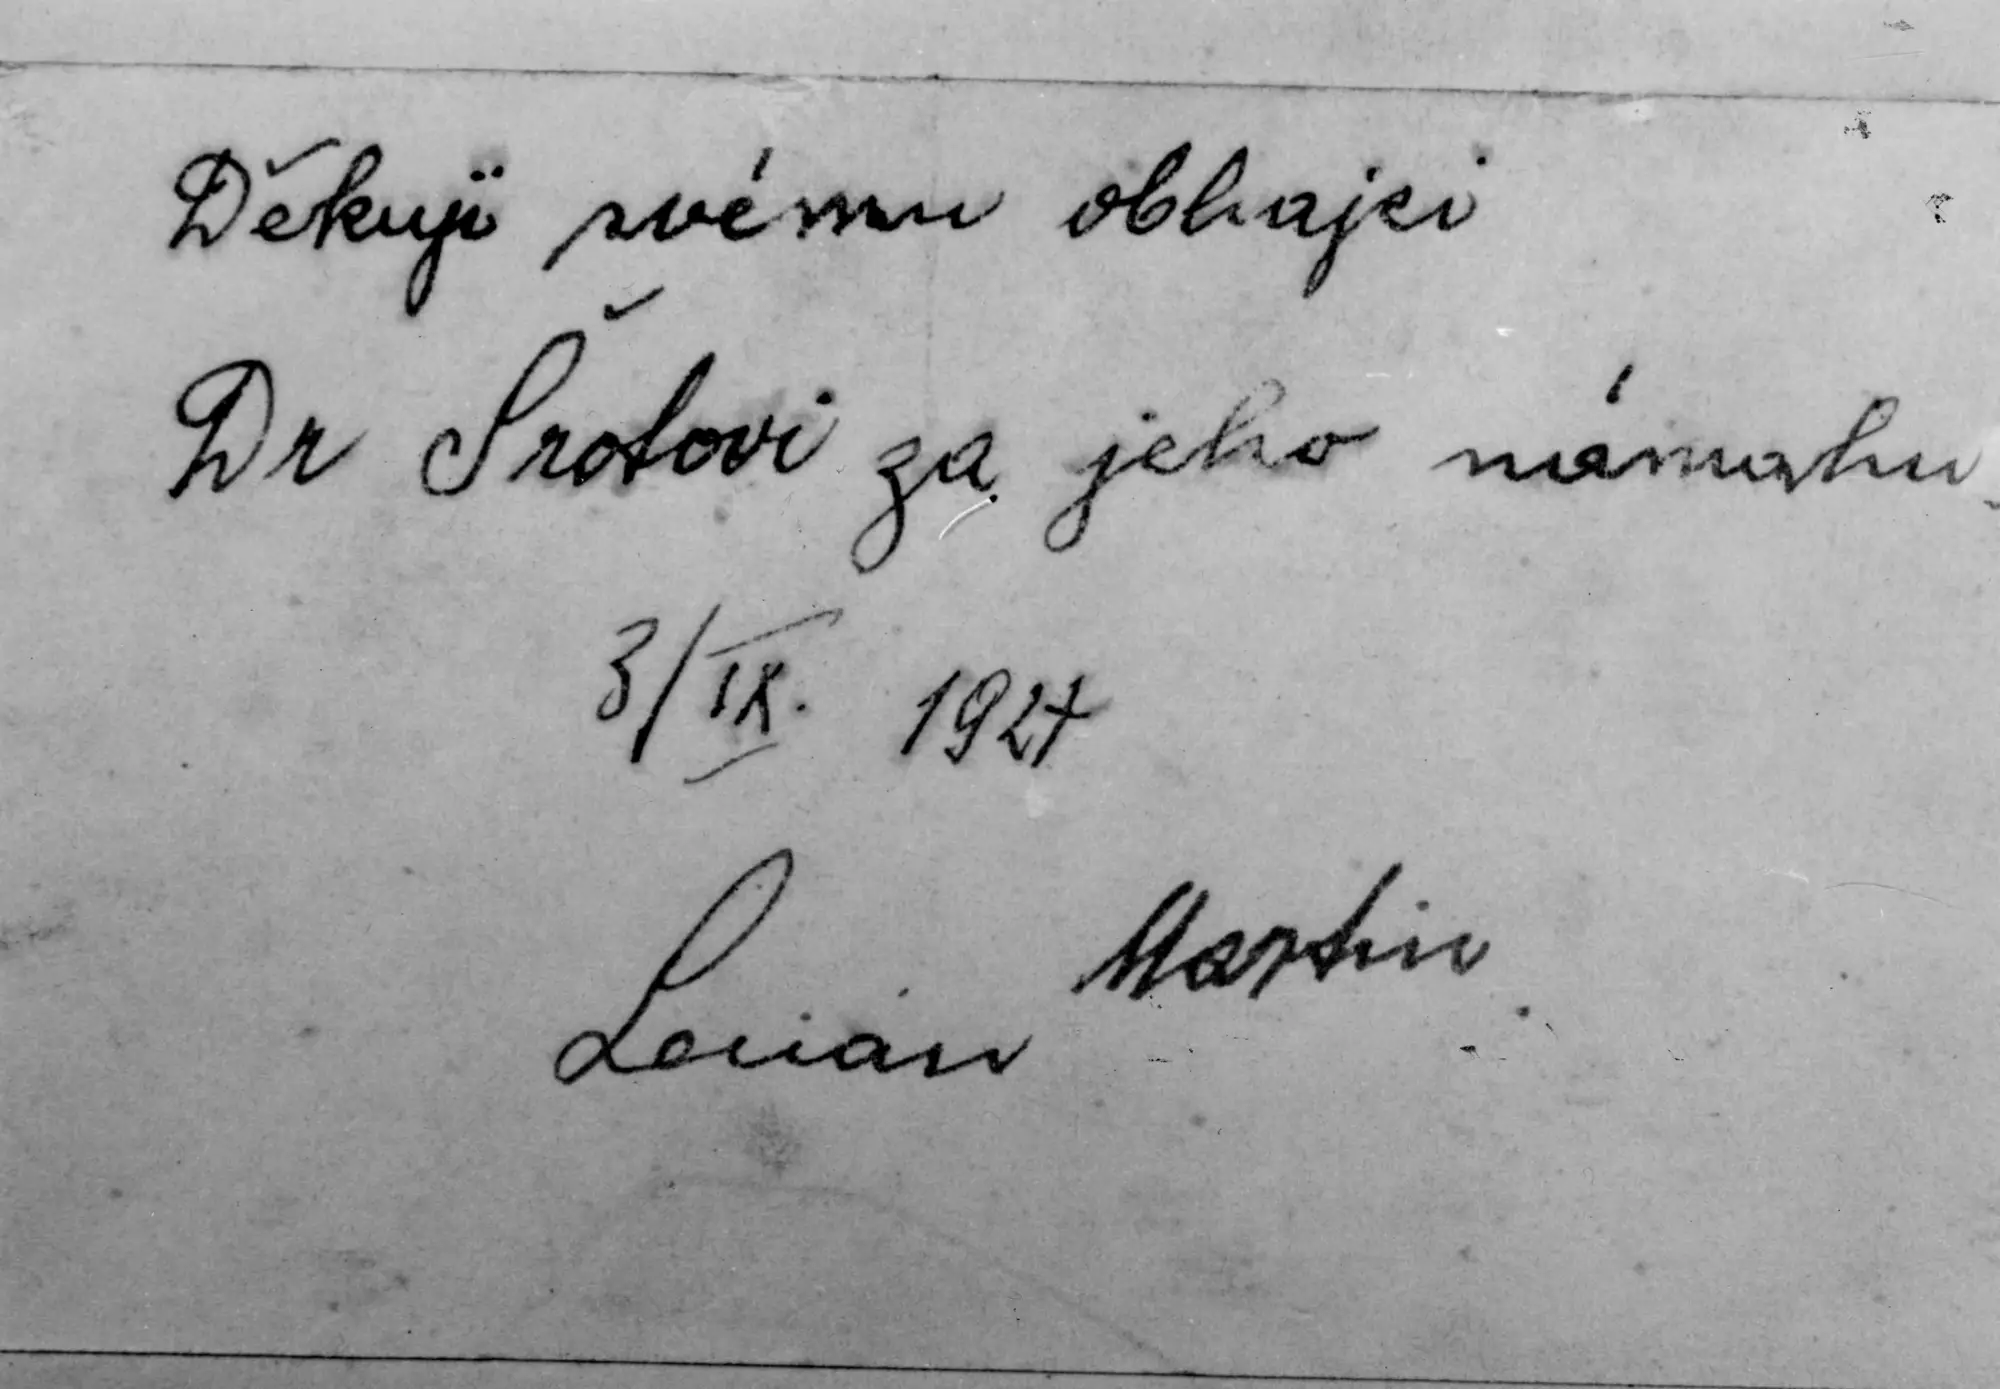 Děkuji svému obhajci
Dr Šrotovi za jeho námahu
3/IX. 1927
Martin
Lecián